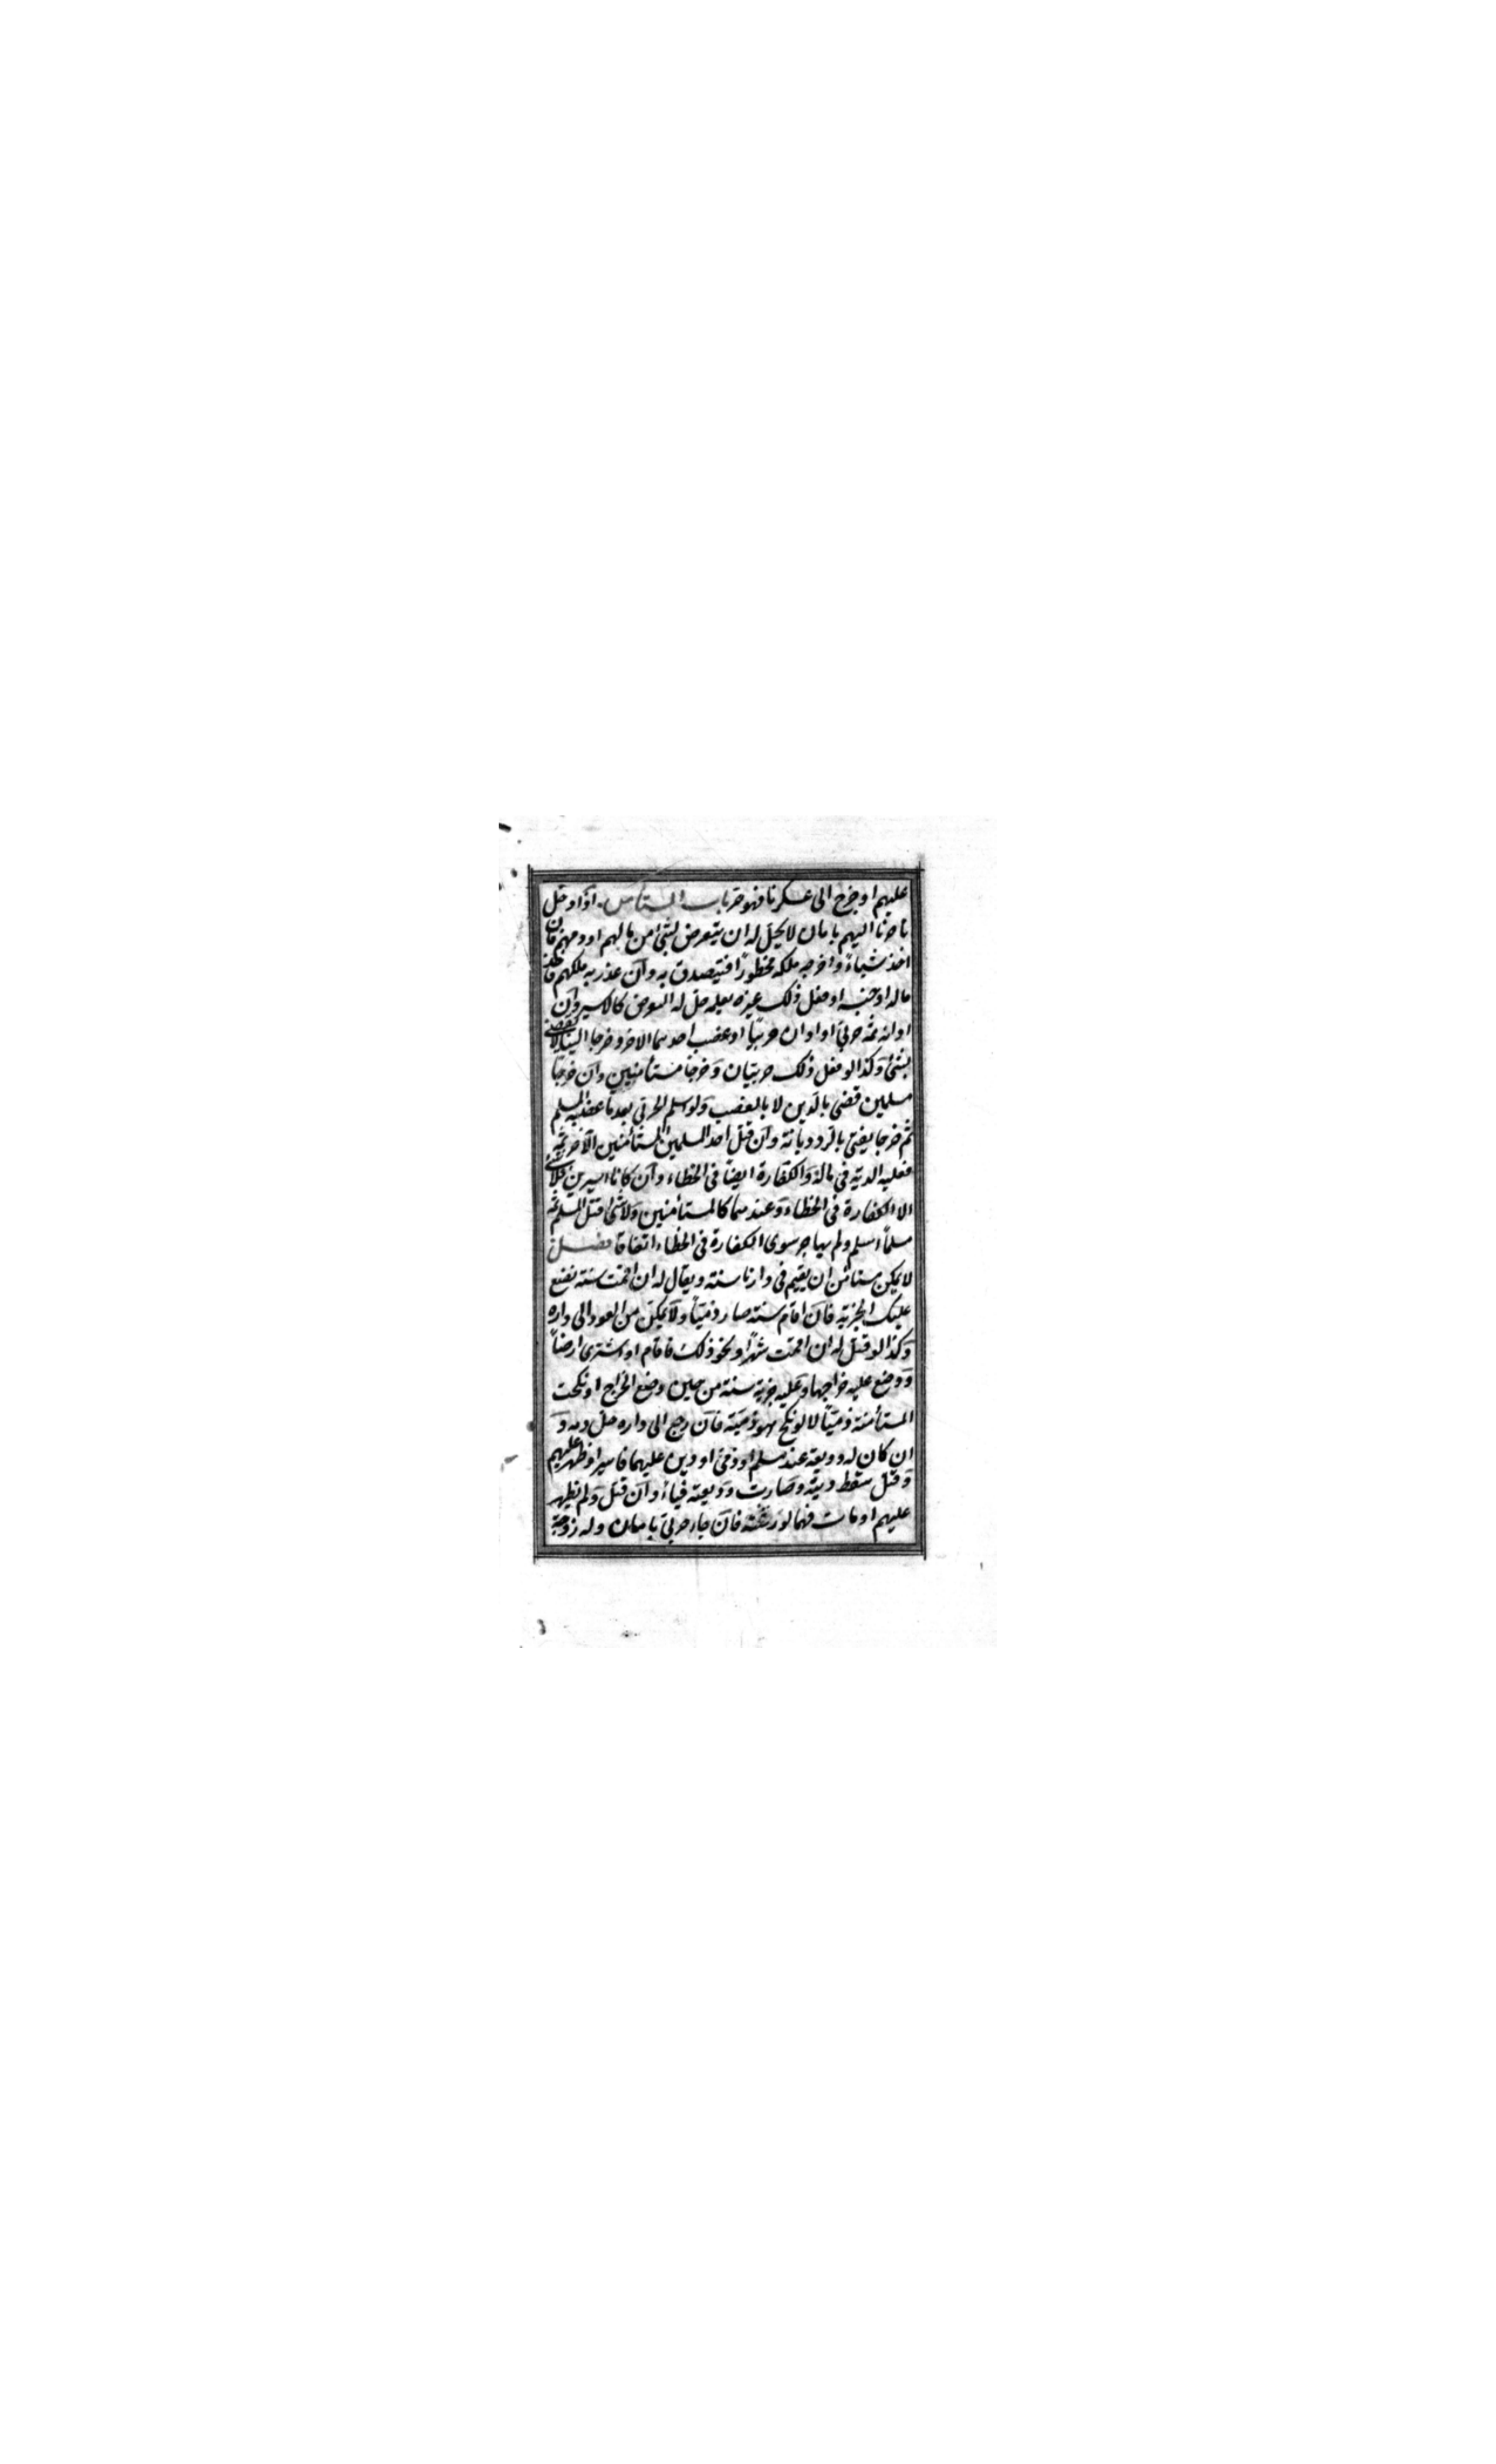 عليهم او خرج الى عسكرنا فهو حر باب المستأمن اذا دخل
تاجرنا اليهم بامان لا يحل له ان يتعرض لشئ من مالهم او دمهم فان
اخذ شيأ واخرجه ملكه محظورا فيتصدق به وان غدر به ملكهم فاخذ
ماله او حبسه او فعل ذلك غيره بعلمه حل له التعرض كالاسير وان
ادانه ثمه حربي او ادان حربيا او غصب احدهما الاخر وخرجا الينا لا يقضى
بشئ وكذا لو فعل ذلك حربيان وخرجا مستأمنين وان خرجا
مسلمين قضى بالدين لا بالغصب ولو اسلم الحربي بعد ما غصبه المسلم
ثم خرجا يفتى بالرد ديانة وان قتل احد المسلمين المستأمنين الآخر ثمه
فعليه الدية في ماله والكفارة ايضا في الخطاء وان كانا اسيرين فلا شئ
الا الكفارة في الخطاء وعندهما كالمستأمنين ولا شئ في قتل المسلم ثمه
مسلما اسلم ولم يهاجر سوى الكفارة في الخطاء اتفاقا فصل
لا يمكن مستأمن ان يقيم في دارنا سنة ويقال له ان اقمت سنة نضع
عليك الجزية فان اقام سنة صار ذميا ولا يمكن من العود الى داره
وكذا لو قيل له ان اقمت شهرا ونحو ذلك فاقام او اشترى ارضا
ووضع عليه خراجها وعليه جزية سنة من حين وضع الخراج او نكحت
المستأمنة ذميا لا لو نكح هو ذمية فان رجع الى داره حل دمه و
ان كان له وديعة عند مسلم او ذمي او دين عليهما فاسر او ظهر عليهم
وقتل سقط دينه وصارت وديعته فيأ وان قتل ولم يظهر
عليهم او مات فهما لورثته فان جاء حربي بامان وله زوجة